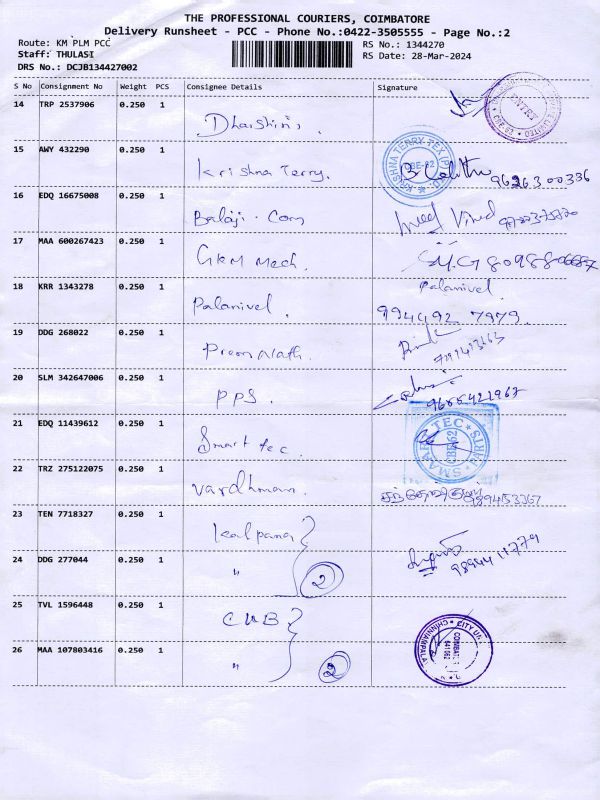 THE PROFESSIONAL COURIERS, COIMBATORE
Delivery Runsheet - PCC - Phone No.:0422-3505555 - Page No.:2
Route: KM PLM PCC
RS No.: 1344270
Staff: THULASI
RS Date: 28-Mar-2024
DRS No.: DCJB134427002
S No Consignment No Weight PCS Consignee Details Signature
14 TRP 2537906 0.250 1
Dharshini.
ENTRY
15 AWY 432290 0.250 1
Krishna Terry. 9626300336
KRISHNA TERRY TEX (P) LTD.
16 EDQ 16675008 0.250 1
Balaji. Com Vinod
17 MAA 600267423 0.250 1
GKM Mech.
18 KRR 1343278 0.250 1 Palanivel
Palanivel. 994492 7979.
19 DDG 268022 0.250 1
Prem Nath.
20 SLM 342647006 0.250 1
PPS. 9655421967
21 EDQ 11439612 0.250 1
Smart tec.
SMAART TEC
22 TRZ 275122075 0.250 1
Vardhmam.
23 TEN 7718327 0.250 1
Kalpana
24 DDG 277044 0.250 1 9894411779
" 2
25 TVL 1596448 0.250 1
CUB
26 MAA 107803416 0.250 1
" 2
CITY UN